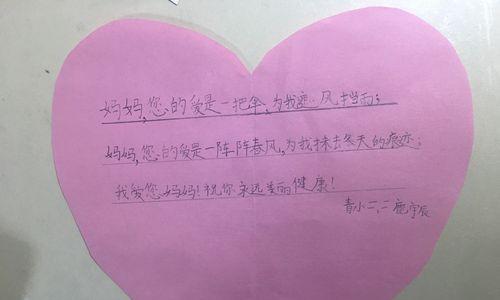 妈妈,您的爱是一把伞,为我遮风挡雨;
妈妈,您的爱是一阵阵春风,为我抹去冬天的痕迹;
我爱您妈妈!祝你永远美丽健康!
青小二、二鹿宇辰